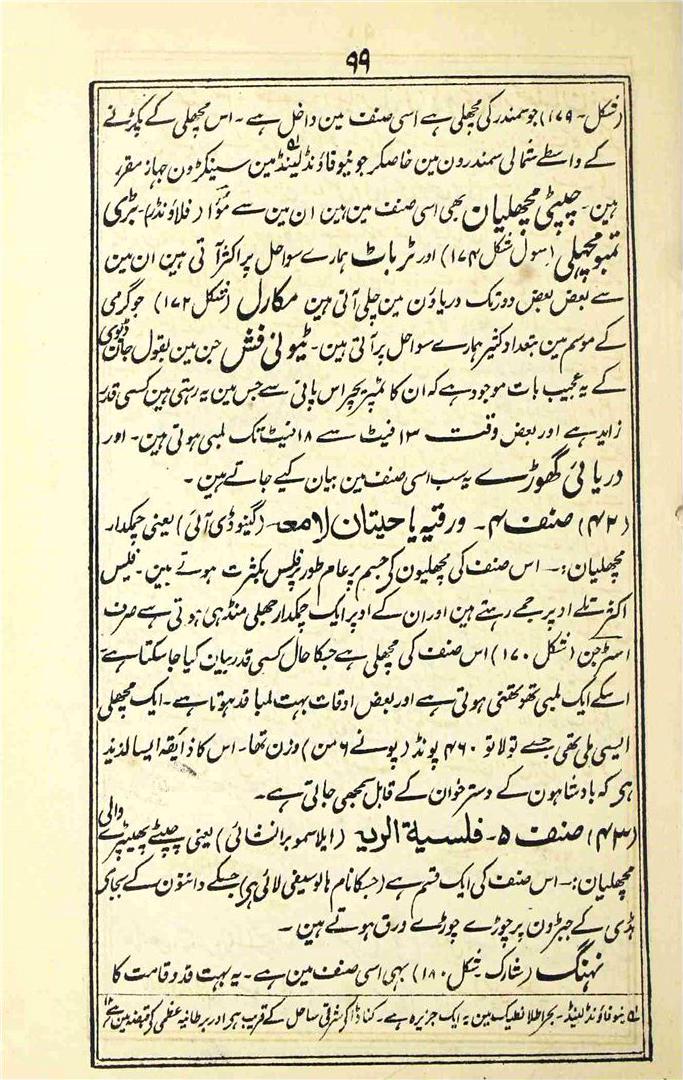 ۹۹
(شکل - ۱۷۹) جو سمندر کی مچھلی ہے اسی صنف مین داخل ہے - اس مچھلی کے پکڑنے
کے واسطے شمالی سمندرون مین خاصکر جو نیو فاؤنڈ لینڈ مین سینکڑون جہاز مقرر
ہین - چپٹی مچھلیان بھی اسی صنف مین ہین ان مین سے مؤا (فلاؤنڈر) - بڑی
تمبو مچھلی (سول شکل ۱۷۴) اور ٹربات ہمارے سواحل پر اکثر آتی ہین ان مین
سے بعض بعض دور تک دریاؤن مین چلی آتی ہین مکارل (شکل ۱۷۲) جو گرمی
کے موسم مین بتعداد کثیر ہمارے سواحل پر آتی ہین - ٹیونی فش جن مین بقول جان ڈیوی
کے یہ عجیب بات موجود ہے کہ ان کا ٹمپریچر اس پانی سے جس مین یہ رہتی ہین کسی قدر
زاید ہے اور بعض وقت ۱۳ فیٹ سے ۱۸ فیٹ تک لمبی ہوتی ہین - اور
دریائی گھوڑے یہ سب اسی صنف مین بیان کیے جاتے ہین -
(۴۲) صنف ۴ - ورقیہ یا حیتان لامعہ - (گینوڈی آئی) یعنی چمکدار
مچھلیان :- اس صنف کی مچھلیون کی جسم پر عام طور پر فلس بکثرت ہوتے ہین - فلس
اکثر تلے اوپر جمے رہتے ہین اور ان کے اوپر ایک چمکدار جھلی منڈہی ہوتی ہے صرف
اسٹرجن (شکل ۱۷۰) اس صنف کی مچھلی ہے جسکا حال کسی قدر بیان کیا جا سکتا ہے
اسکے ایک لمبی تھوتھنی ہوتی ہے اور بعض اوقات بہت لمبا قد ہوتا ہے - ایک مچھلی
ایسی ملی تھی جسے تولا تو ۴۶۰ پونڈ (پونے ۶ من) وزن تھا - اس کا ذایقہ ایسا لذیذ
ہی کہ بادشاہون کے دسترخوان کے قابل سمجھی جاتی ہے -
(۴۳) صنف ۵ - فلسیة الریہ (ایلاسمو برانشائی) یعنی چپٹے پھیپڑے والی
مچھلیان :- اس صنف کی ایک قسم ہے (جسکا نام ہالوسیفی لائی ہی) جسکے دانتون کے بجائے
ہڈی کے جبڑون پر چوڑے چوڑے ورق ہوتے ہین -
نہنگ (شارک شکل ۱۸۰) بہی اسی صنف مین ہے - یہ بہت قد و قامت کا
لہ نیو فاؤنڈ لینڈ - بحر اطلانطیک مین یہ ایک جزیرہ ہے - کناڈا کی شرقی ساحل کے قریب ہی اور برطانیہ عظمی کی قبضہ مین ہے ۱۲